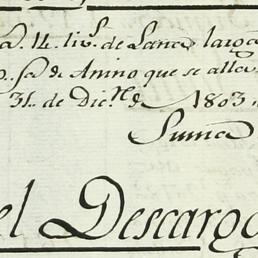 14. liv.s de Lana larga
de Anino que se alla
31. de Dic.re de 1803
Suma
el Descargo